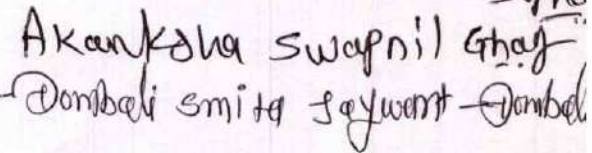 Akanksha Swapnil Ghag
Dombali smita Jaywant Dombal